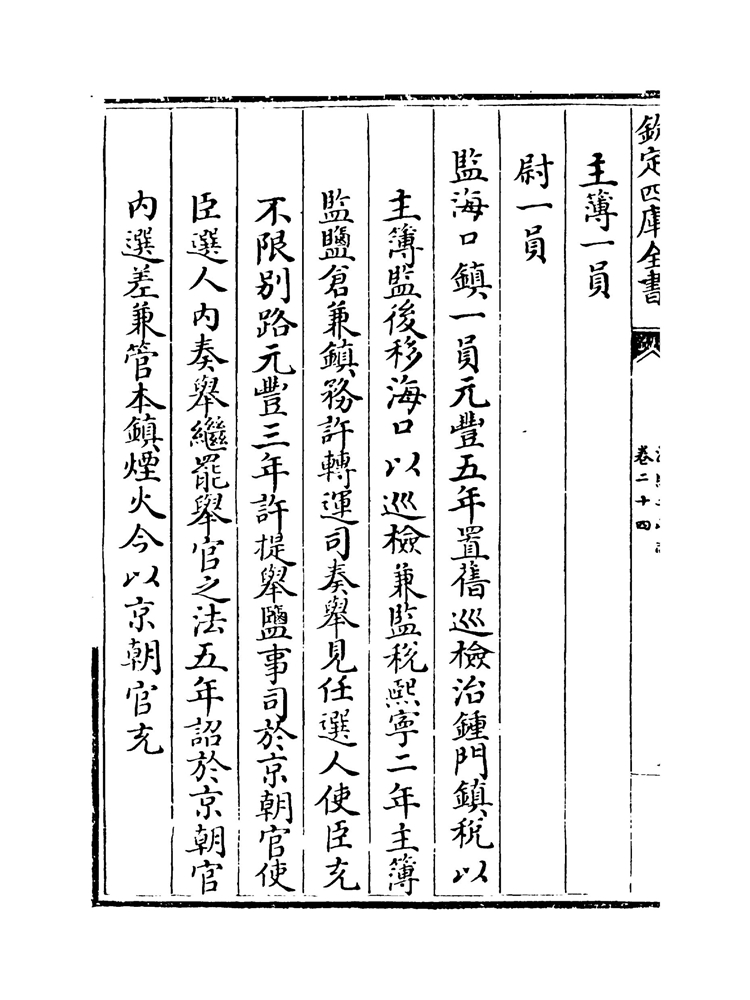 欽定四庫全書
卷二十四
主簿一員
尉一員
監海口鎮一員元豐五年置舊巡檢治鍾門鎮稅以
主簿監後移海口以巡檢兼監稅熙寧二年主簿
監鹽倉兼鎮務許轉運司奏舉見任選人使臣充
不限別路元豐三年許提舉鹽事司於京朝官使
臣選人内奏舉繼罷舉官之法五年詔於京朝官
内選差兼管本鎮煙火今以京朝官充